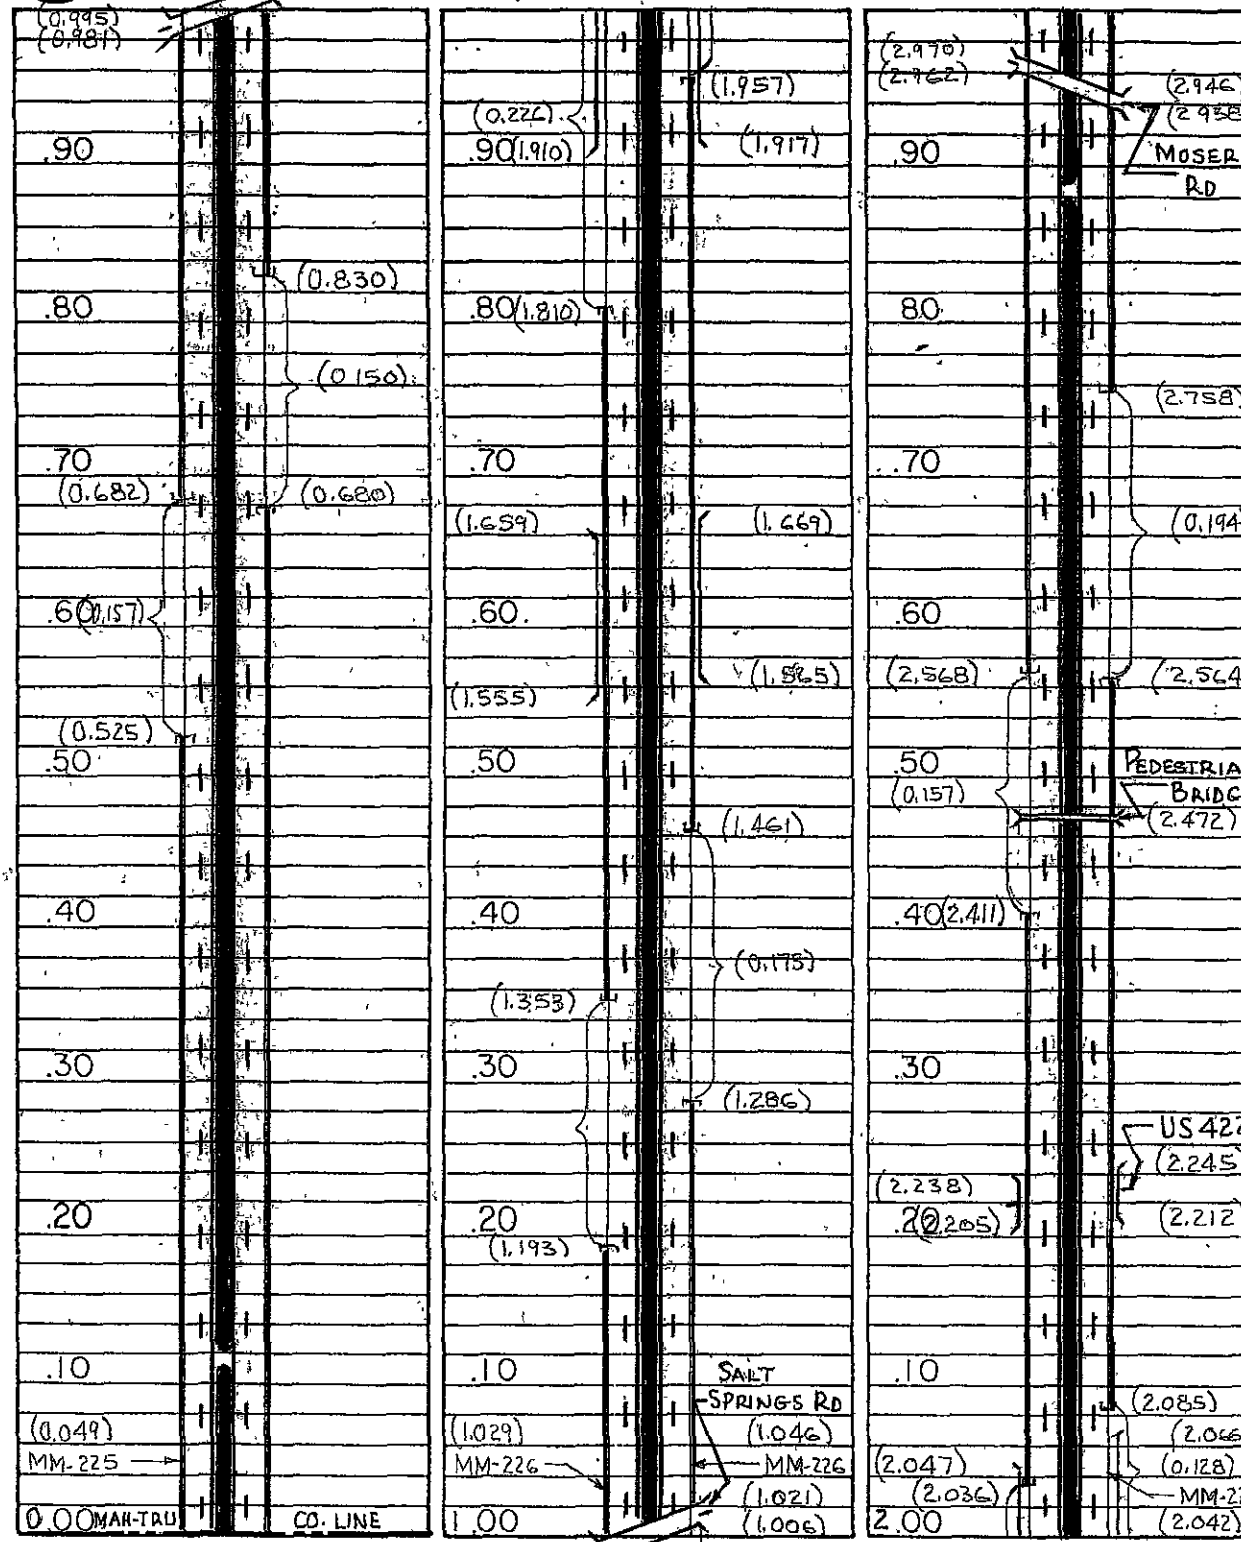 (0.995)
(0.981)
.90
(0.830)
.80
(0.150)
.70
(0.682)
(0.680)
.60
(0.157)
(0.525)
.50
.40
.30
.20
.10
(0.049)
MM-225
0.00 MAH-TRU CO. LINE
(1.957)
(0.226)
.90 (1.910)
(1.917)
.80 (1.810)
.70
(1.659)
(1.669)
.60
(1.565)
(1.555)
.50
(1.461)
.40
(0.175)
(1.353)
.30
(1.286)
.20
(1.193)
.10
SALT
SPRINGS RD
(1.029)
(1.046)
MM-226
MM-226
(1.021)
1.00
(1.006)
(2.970)
(2.962)
(2.946)
(2.938
.90
MOSER
RD
.80
(2.758)
.70
(0.194
.60
(2.568)
(2.564
.50
PEDESTRIA
BRIDG
(0.157)
(2.472)
.40 (2.411)
.30
US 422
(2.245)
(2.238)
.20 (2.205)
(2.212)
.10
(2.085)
(2.066
(2.047)
(0.128)
(2.036)
MM-22
2.00
(2.042)